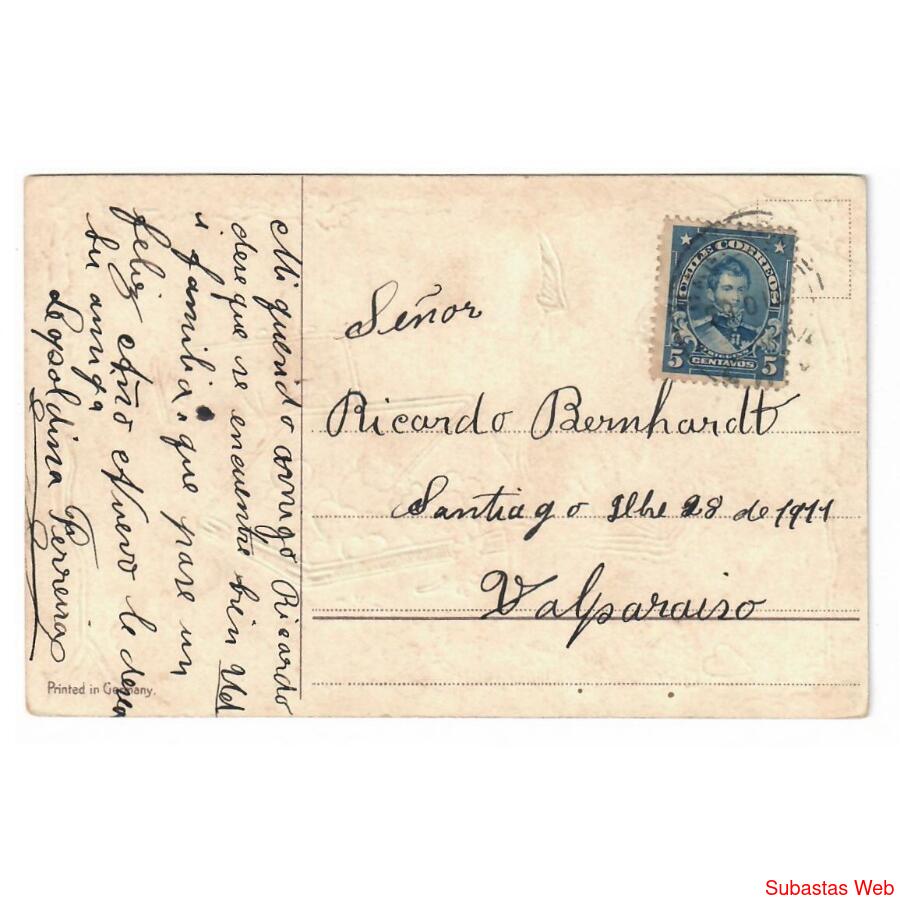 Mi querido amigo Ricardo
dese que se encuentre bien Ud
u familia que pase un
feliz Año Nuevo le desea
su amiga
Leopoldina Ferreira
Printed in Germany.
CHILE CORREOS
5 CENTAVOS 5
Señor
Ricardo Bernhardt
Santiago 28 de 1911
Valparaiso
Subastas Web